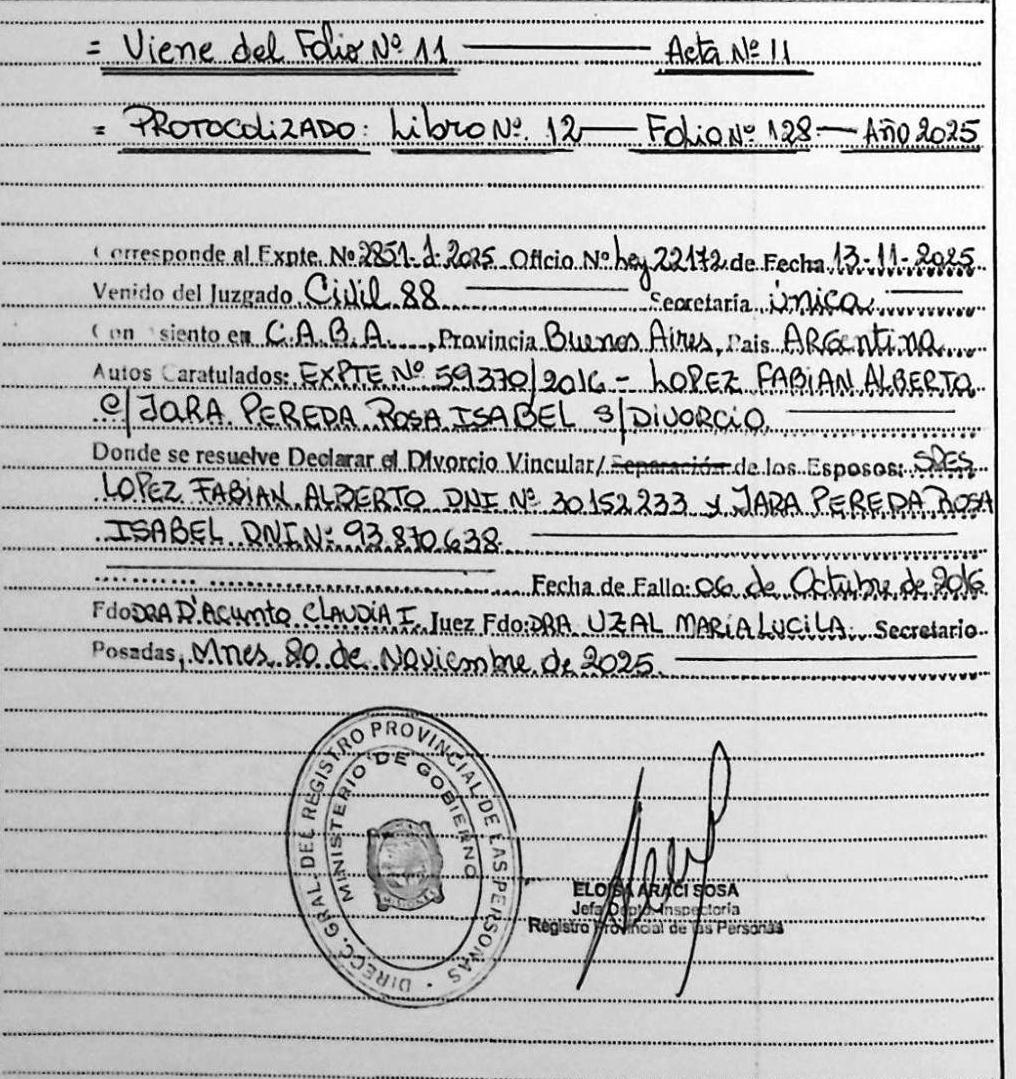 = Viene del Folio Nº 11 Acta Nº 11
= PROTOCOLIZADO: Libro Nº. 12 Folio Nº 128 Año 2025
Corresponde al Expte. Nº 2851-1-2025 Oficio Nº Ley 22172 de Fecha 13-11-2025
Venido del Juzgado Civil 88 Secretaría única
Con asiento en C.A.B.A., Provincia Buenos Aires, País ARGentina
Autos Caratulados: EXPTE Nº 59370/2016 - LOPEZ FABIAN ALBERTO
C/ JARA PEREDA ROSA ISABEL S/ DIVORCIO
Donde se resuelve Declarar el Divorcio Vincular/ Separación de los Esposos: SRES
LOPEZ FABIAN ALBERTO DNI Nº 30152233 y JARA PEREDA ROSA
ISABEL DNI Nº 93870638
Fecha de Fallo: 06 de Octubre de 2016
Fdo: DRA D'ACUNTO CLAUDIA I. Juez Fdo: DRA UZAL MARIA LUCILA Secretario
Posadas, Mnes. 20 de Noviembre de 2025
DIRECC. GRAL. DEL REGISTRO PROVINCIAL DE LAS PERSONAS
MINISTERIO DE GOBIERNO
ELOISA ARACI SOSA
Jefa Dpto. Inspectoría
Registro Provincial de las Personas